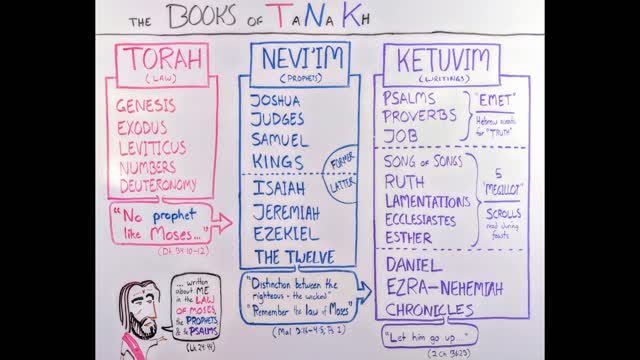 THE BOOKS OF TaNaKh
TORAH
(LAW)
GENESIS
EXODUS
LEVITICUS
NUMBERS
DEUTERONOMY
"No prophet
like Moses..."
(Dt 34:10-12)
... written
about ME
in the LAW
OF MOSES,
the PROPHETS
& the PSALMS
(Lk 24:44)
NEVI'IM
(PROPHETS)
JOSHUA
JUDGES
SAMUEL
KINGS
FORMER
LATTER
ISAIAH
JEREMIAH
EZEKIEL
THE TWELVE
"Distinction between the
righteous - the wicked"
"Remember the law of Moses"
KETUVIM
(WRITINGS)
PSALMS
PROVERBS
JOB
"EMET"
Hebrew
for "TRUTH"
SONG OF SONGS
RUTH
LAMENTATIONS
ECCLESIASTES
ESTHER
5
"MEGILLOT"
SCROLLS
read during
feasts
DANIEL
EZRA-NEHEMIAH
CHRONICLES
"Let him go up..."
(2 Ch 36:23)